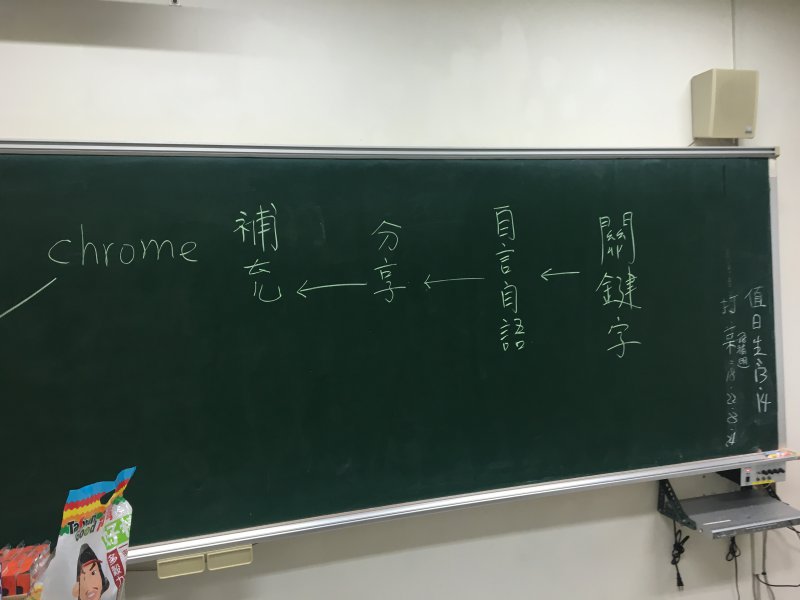 值日生 13.14
關鍵字
自言自語
分享
補充
chrome